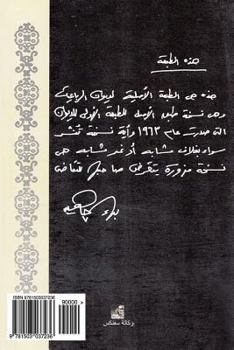 هذه الطبعة
هذه هي الطبعة الأصلية لديوان الرباعيات
وهي نسخة طبق الأصل للطبعة الأولى للديوان
التي صدرت عام ١٩٦٣ وأية نسخة تُنشر
سواء بغلاف مشابه أو غير مشابه هي
نسخة مزورة يتعرض صاحبها للتقاضي
ISBN 9781503037236
90000 >
9 781503 037236
وكالة سفنكس